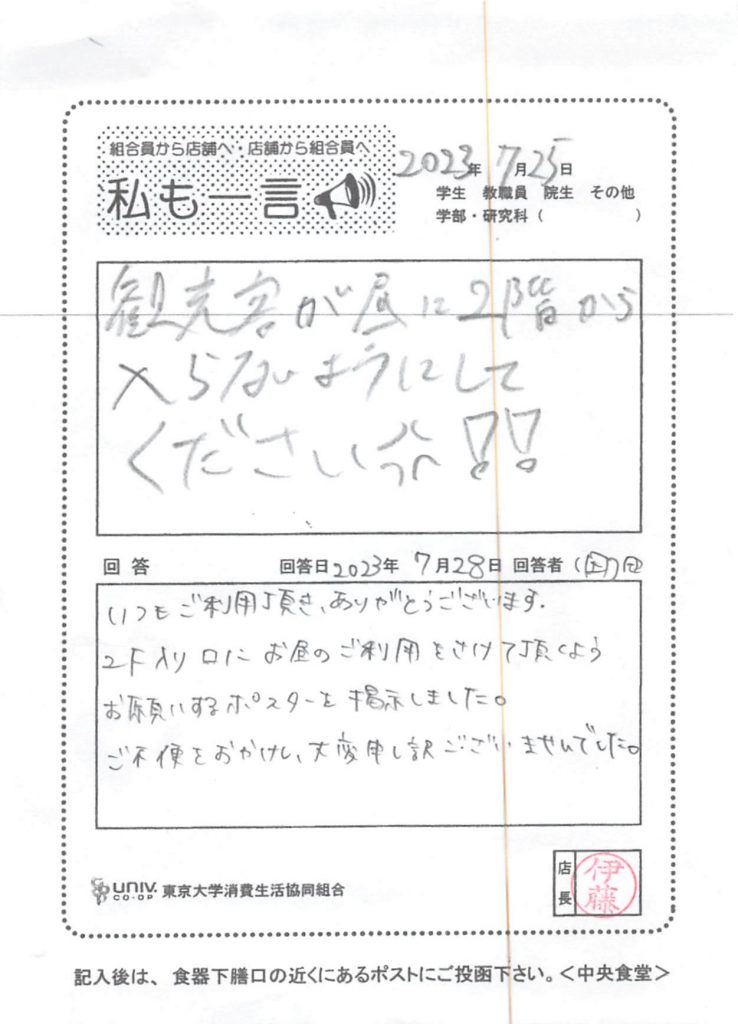 組合員から店舗へ・店舗から組合員へ
私も一言
2023年 7月25日
学生 教職員 院生 その他
学部・研究科( )
観光客が昼に2階から
入らないようにして
ください !!
回答 回答日2023年 7月28日 回答者(
いつもご利用頂き、ありがとうございます。
2F入り口にお昼のご利用をさけて頂くよう
お願いするポスターを掲示しました。
ご不便をおかけし、大変申し訳ございませんでした。
UNIV. CO-OP 東京大学消費生活協同組合
店長 伊藤
記入後は、食器下膳口の近くにあるポストにご投函下さい。<中央食堂>